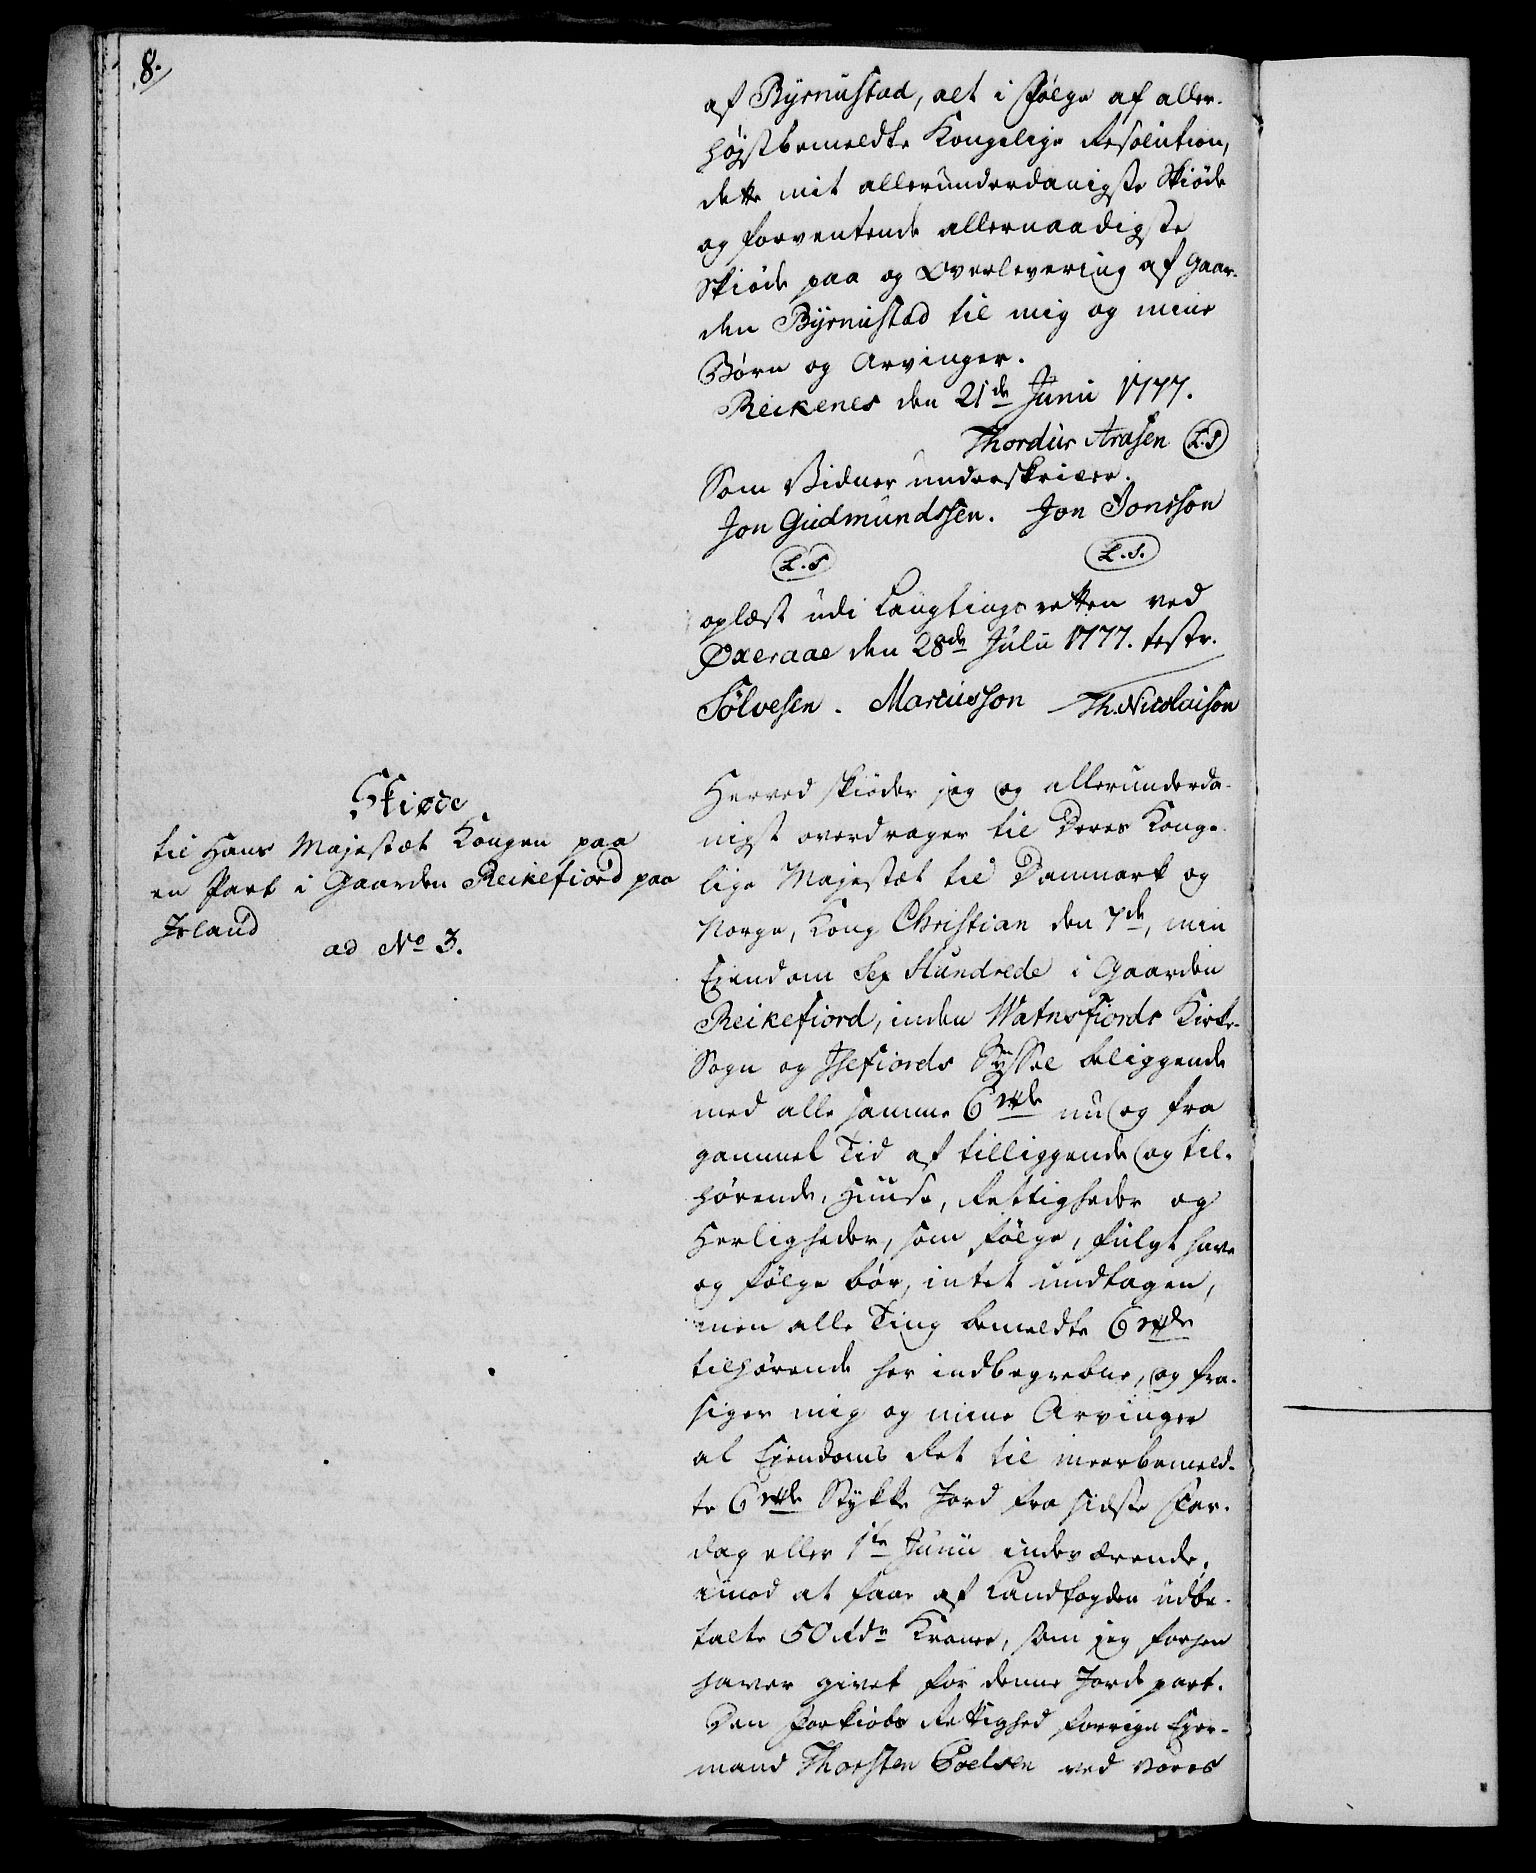 8.
af Byrnustad, alt i Følge af aller-
højstbemeldte Kongelige Resolution,
dette mit allerunderdanigste Skiøde
og forventende allernaadigste
Skiøde paa og Overlevering af Gaar-
den Byrnustad til mig og mine
Børn og Arvinger.
Reikenes den 21de Junii 1777.
Thordur Arasen (L.S)
Som Vidner underskriver.
Jon Gudmundssen. Jon Jonsson
(L.S) (L.S.)
oplæst udi Laugtingsretten ved
Øxeraae den 28de Julii 1777. test.
Sølvesen. Marcusson Th. Nicolaison
Skiøde
til Hans Majestæt Kongen paa
en Part i Gaarden Reikefiord paa
Island
ad No 3.
Herved skiøder jeg og allerunderda-
nigst overdrager til Deres Konge-
lige Majestæt til Danmark og
Norge, Kong Christian den 7de, min
Ejendom Sex Hundrede i Gaarden
Reikefiord, inden Watnsfiords Kirke-
Sogn og Isefiords Syssel beliggende
med alle samme 6rde nu og fra
gammel Tid af tilliggende og til-
hørende, Huuse, Rettigheder og
Herligheder, som følge, fulgt have
og følge bør, intet undtagen,
men alle Ting bemeldte 6rde
tilhørende her indbegrebne, og fra-
siger mig og mine Arvinger
al Ejendoms Ret til meerbemeld-
te 6rde Stykke Jord fra sidste Far-
dag eller 1te Junii indeværende,
imod at faae af Landfogden udbe-
talte 50 Rdr Kroner, som jeg forhen
haver givet for denne Jorde part.
Den Forkiøbs Rettighed forrige Ejer-
mand Thorsten Poelsen ved vores